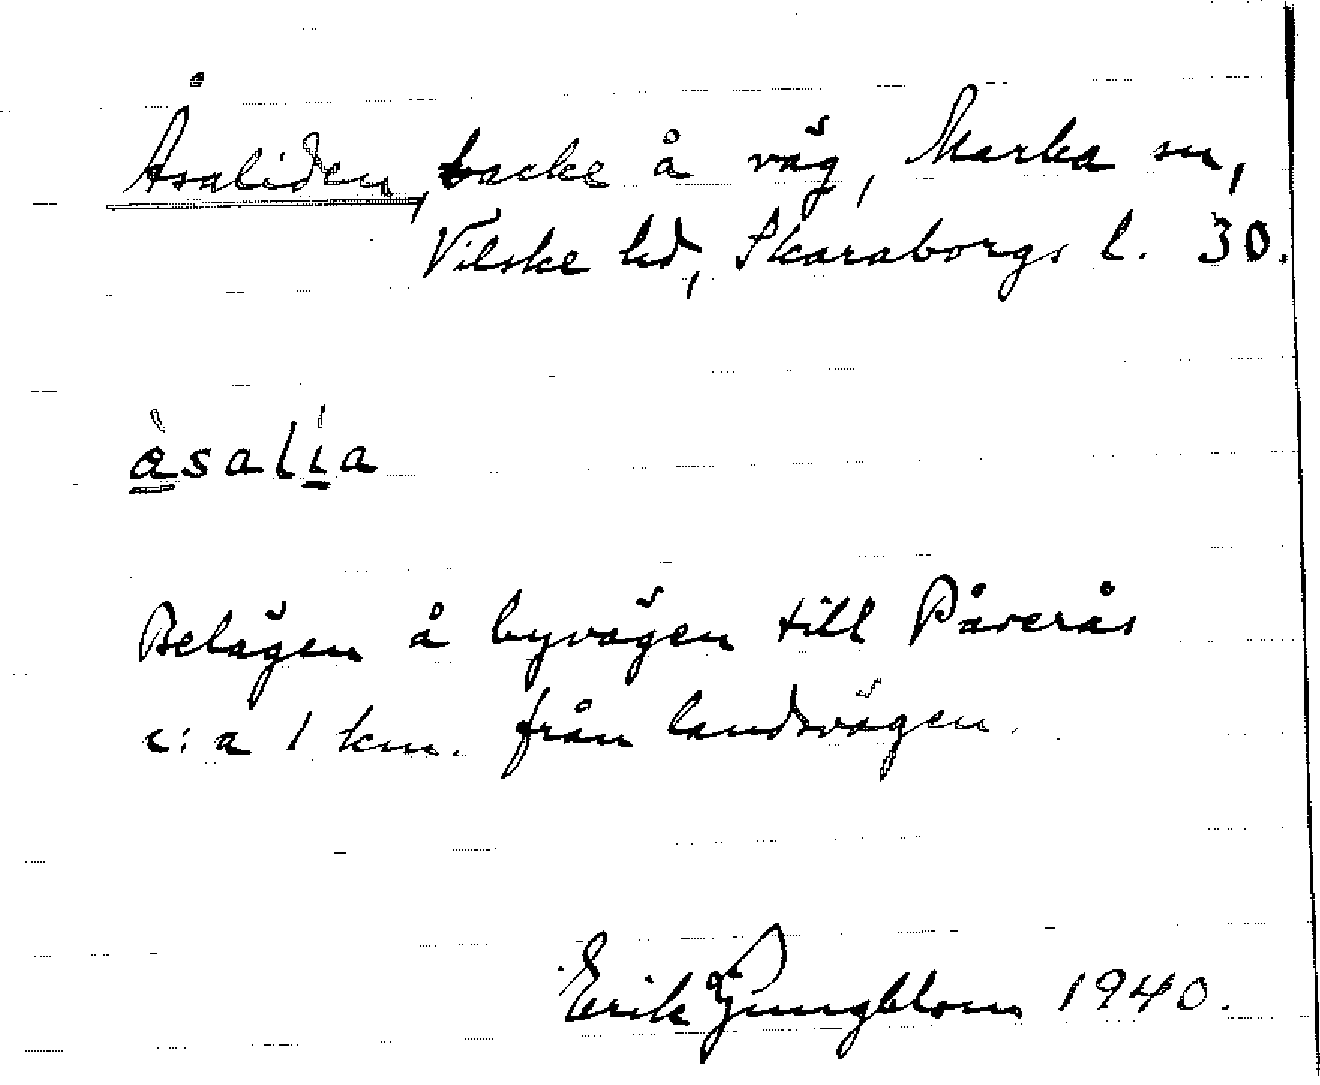 Åsaliden, backe å väg, Marka sn,
Vilske hd, Skaraborgs l. 30.
àsalía
Belägen å byvägen till Påverås
c:a 1 km. från landsvägen.
Erik Ljungblom 1940.